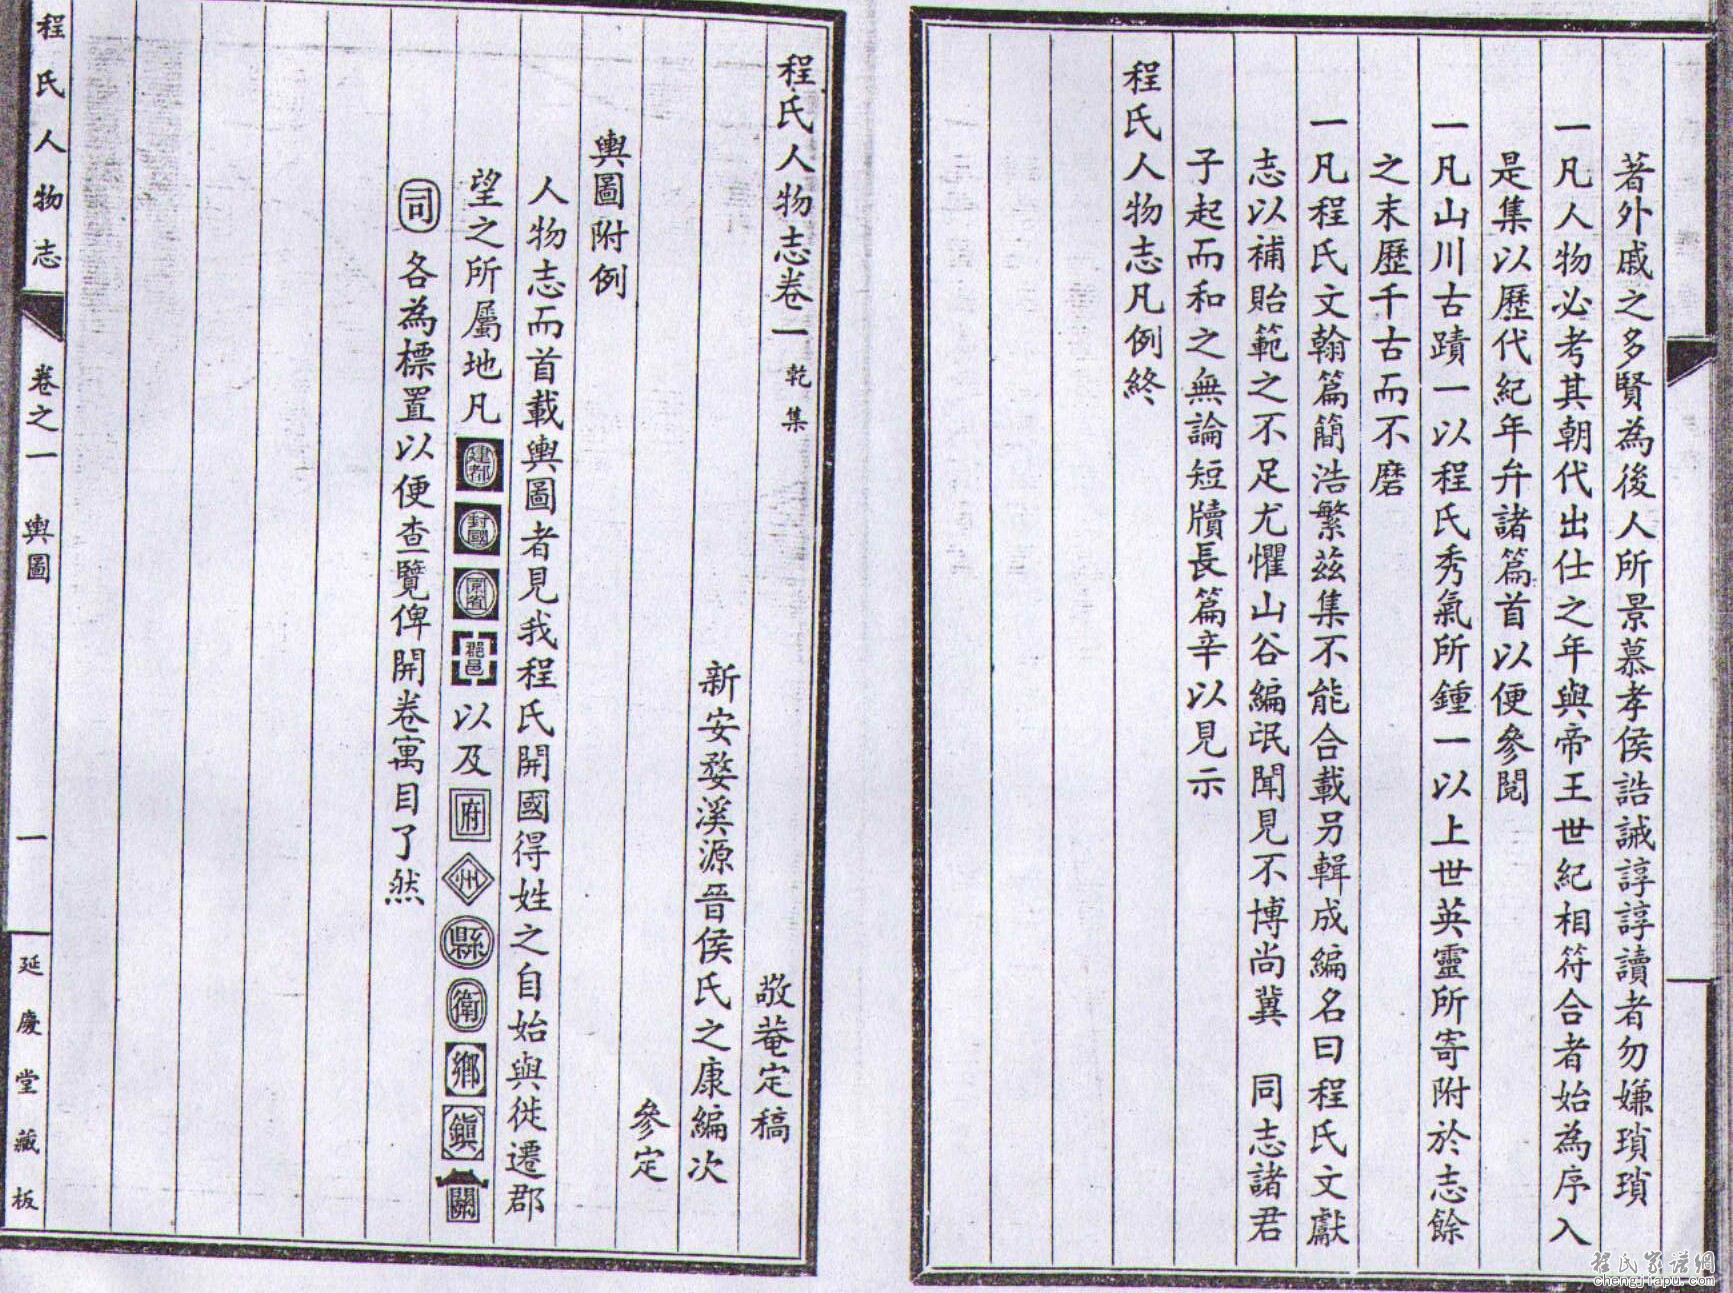 著外戚之多賢為後人所景慕孝侯誥誡諄諄讀者勿嫌瑣瑣
一凡人物必考其朝代出仕之年與帝王世紀相符合者始為序入
是集以歷代紀年弁諸篇首以便參閱
一凡山川古蹟一以程氏秀氣所鍾一以上世英靈所寄附於志餘
之末歷千古而不磨
一凡程氏文翰篇簡浩繁茲集不能合載另輯成編名曰程氏文獻
志以補貽範之不足尤懼山谷編氓聞見不博尚冀 同志諸君
子起而和之無論短牘長篇辛以見示
程氏人物志凡例終
程氏人物志卷一 乾集
敬菴定稿
新安婺溪源晉侯氏之康編次
參定
輿圖附例
人物志而首載輿圖者見我程氏開國得姓之自始與徙遷郡
望之所屬地凡建都封國京省郡邑以及府州縣衛鄉鎮關
司各為標置以便查覽俾開卷寓目了然
程氏人物志
卷之一 輿圖
一
延慶堂藏板
程氏家譜網
chengjiapu.com